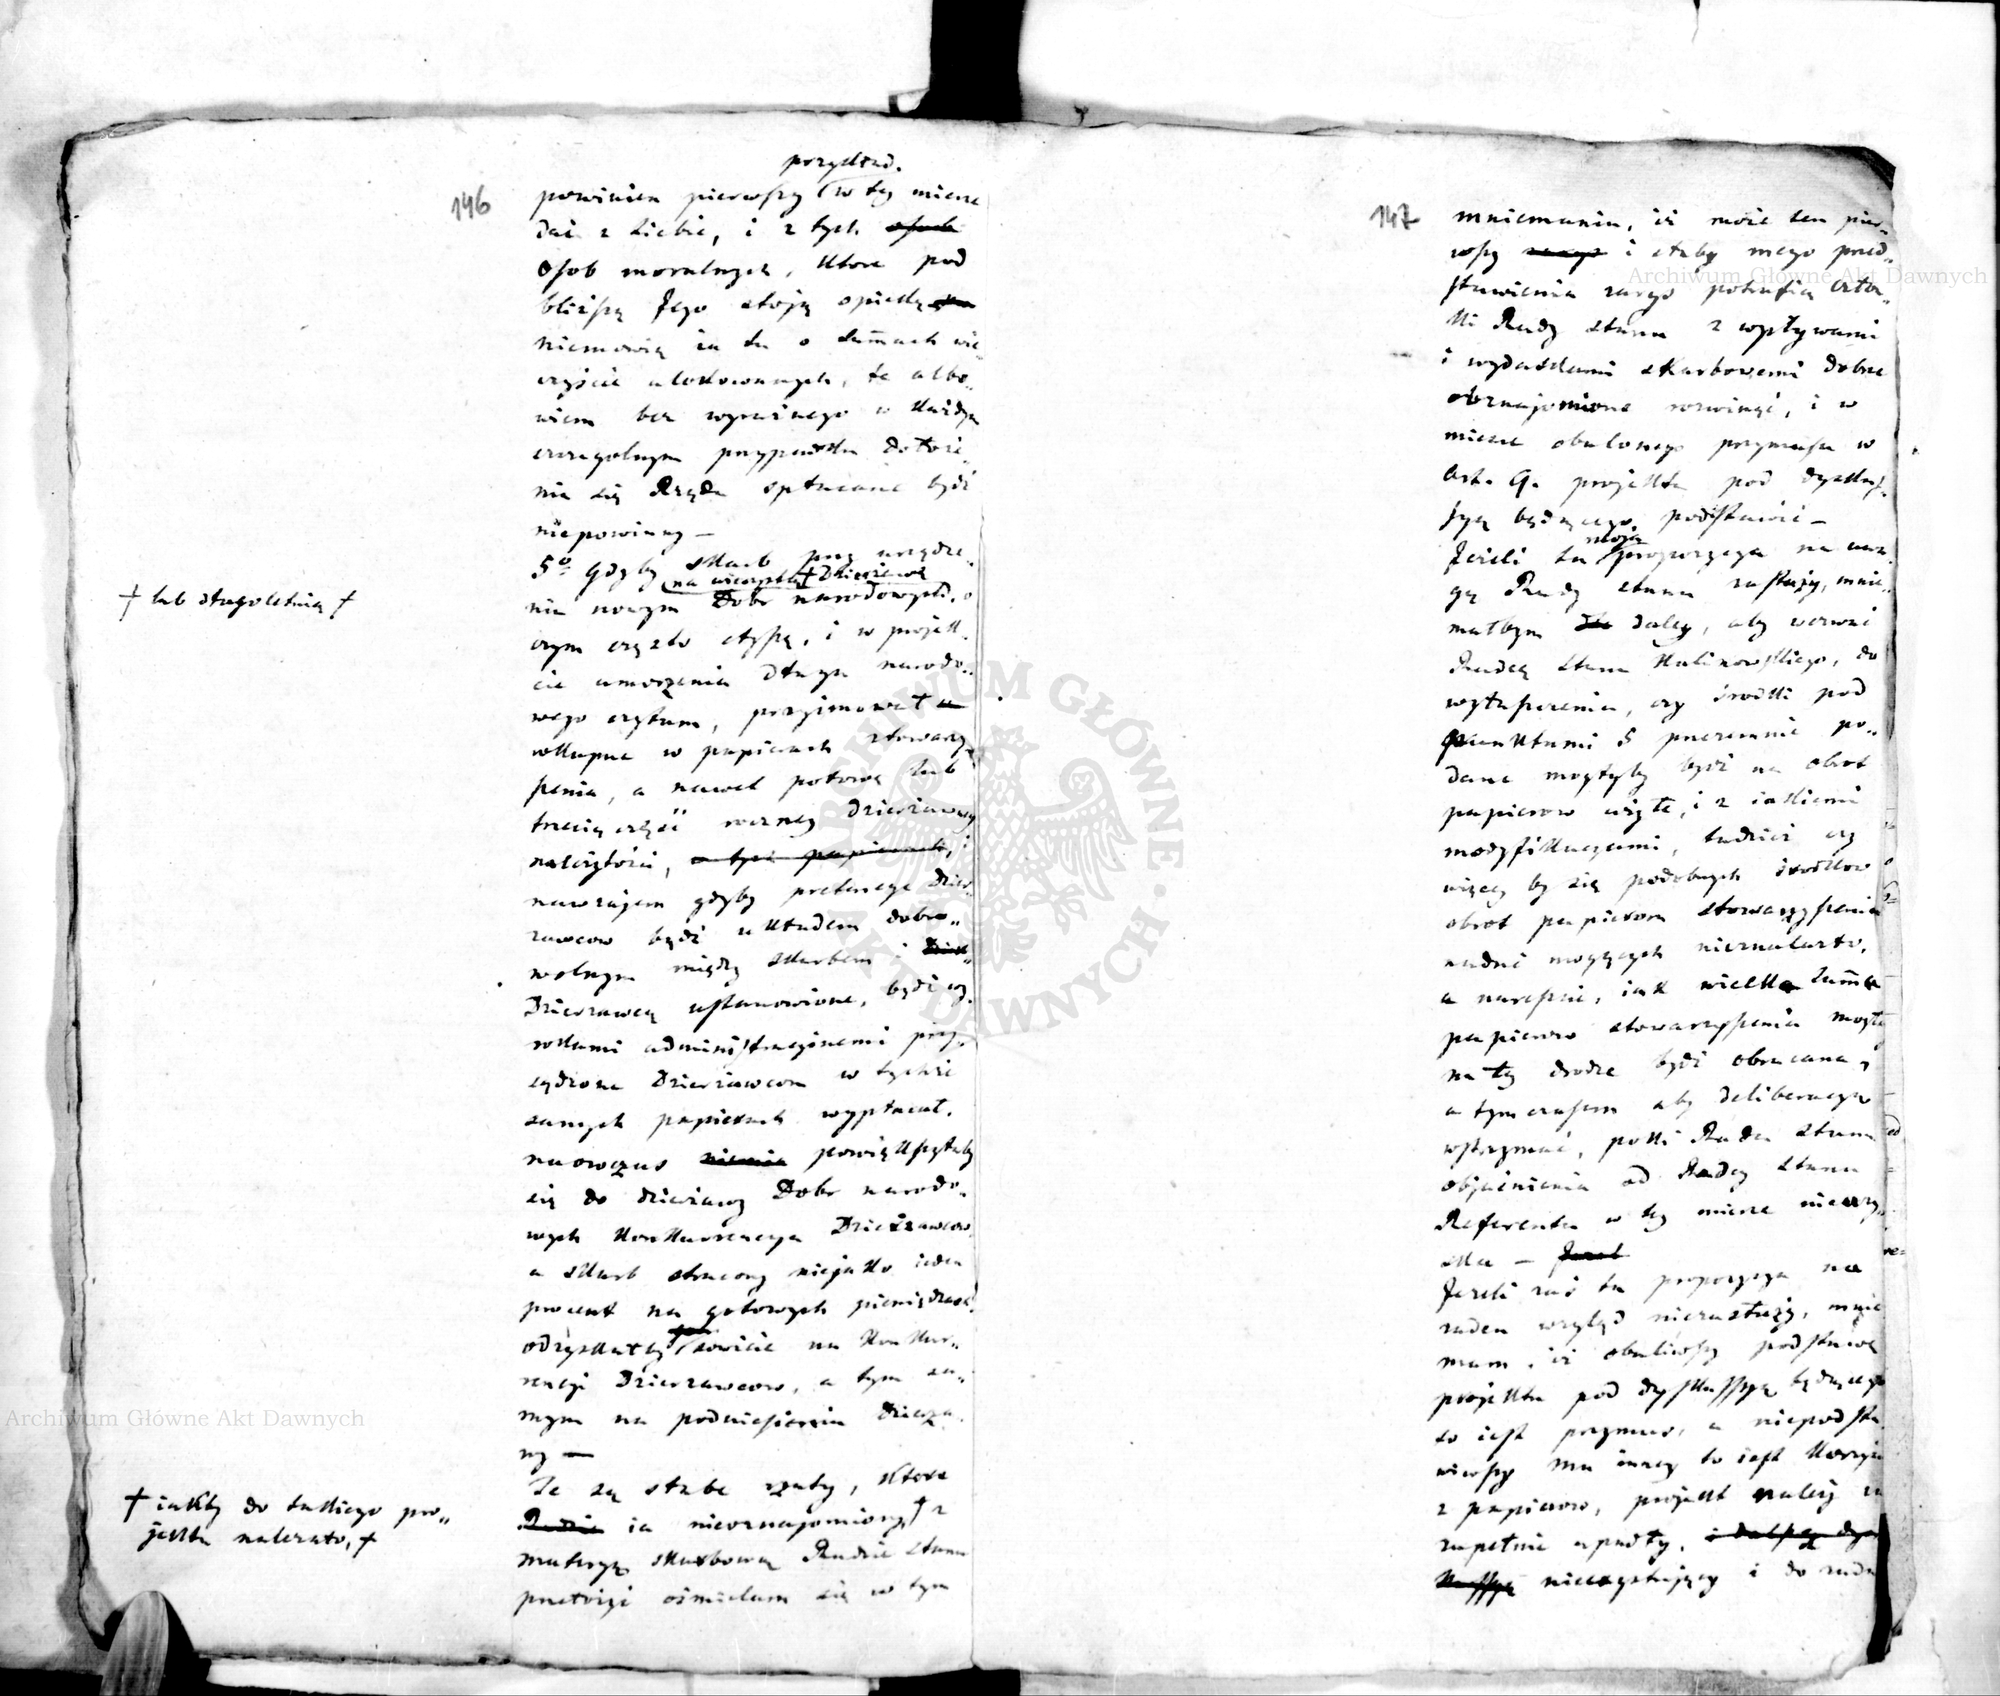 146
przykład.
powinien pierwszy (w tey mierze
dać z siebie, i z tych osob
Osob moralnych, ktore pod
bliższą Jego stoją opieką
niemowię ia tu o summach wie„
czyście ulokowanych, te albo„
wiem bez wyraźnego w każdym
szczegolnym przypadku dołoże„
nia się Rządu spłacane bydź
niepowinny —
5o Gdyby Skarb przy urządze„
na wieczystą + Dzierżawę
niu nowym Dobr narodowych, o
czym często słyszę, i w projek„
cie umorzenia Długu narodo„
wego czytam, przyimował
wkupne w papierach stowarzy„
szenia, a nawet połowę lub
trzecią część roczney dzierżawney
należytości, w tych papierach, i
nawzajem gdyby pretensye Dzier„
żawcow bądź układem dobro„
wolnym między Skarbem i
Dzierżawcą ustanowione, bądź wy„
rokami administracyinemi przy„
sądzone Dzierżawcom w tychże
samych papierach wypłacał,
naowczas powiększyłaby
się do dzierżawy Dobr narodo„
wych Konkurencya Dzierżawcow,
a Skarb straciwszy nieiako ieden
procent na gotowych pieniądzach,
odzyskałby sowicie na Konkur„
rencyi Dzierżawcow, a tym sa„
mym na podniesieniu dzierża„
wy —
Te są słabe rzuty, ktore
Radzie ia nieoznajomiony + z
materyą skarbową Radzie Stanu
przełożyć ośmielam się w tym
+ lub długoletnią +
+ iakby do takiego pro„
jektu należało, +
147
mniemaniu, iż może ten pier„
wszy i słaby mego przed„
stawienia zarys potrafią Człon„
ki Rady Stanu z wpływami
i wydatkami skarbowemi dobrze
obeznajomione rozwinąć, i w
mieysce obalonego przymusu w
Art. 9. projektu pod dyskus„
syą będącego, podstawić —
moja
Jeżeli ta propozycya na uwa„
gę Rady Stanu zasłuży, mnie„
małbym daley, aby wezwać
Radcę Stanu Kalinowskiego, do
wyłuszczenia, czy środki pod
punktami 5 przezemnie po„
dane mogłyby bydź na obrot
papierow użyte, i z iakiemi
modyfikacyami, tudzież czy
więcey by się podobnych środkow
obrot papierom stowarzyszenia
nadać mogących nieznalazło,
a nareszcie, iak wielka Summa
papierow stowarzyszenia mogła
na tey drodze bydź obracana,
a tym czasem aby deliberacyę
wstrzymać, poki Rada Stanu
objaśnienia od Radcy Stanu
Referenta w tey mierze nieuzy„
ska —
Jeżeli zaś ta propozycya na
żaden wzgląd niezasłuży, mnie
mam, iż obaliwszy podstawę
projektu pod dyskussyą będącego
to iest przymus, a niepodsta„
wiwszy mu inney to iest Korzyści
z papierow, projekt należy za
zupełnie upadły, i dalszą dys
kussyę nieegzystujący i do żadn